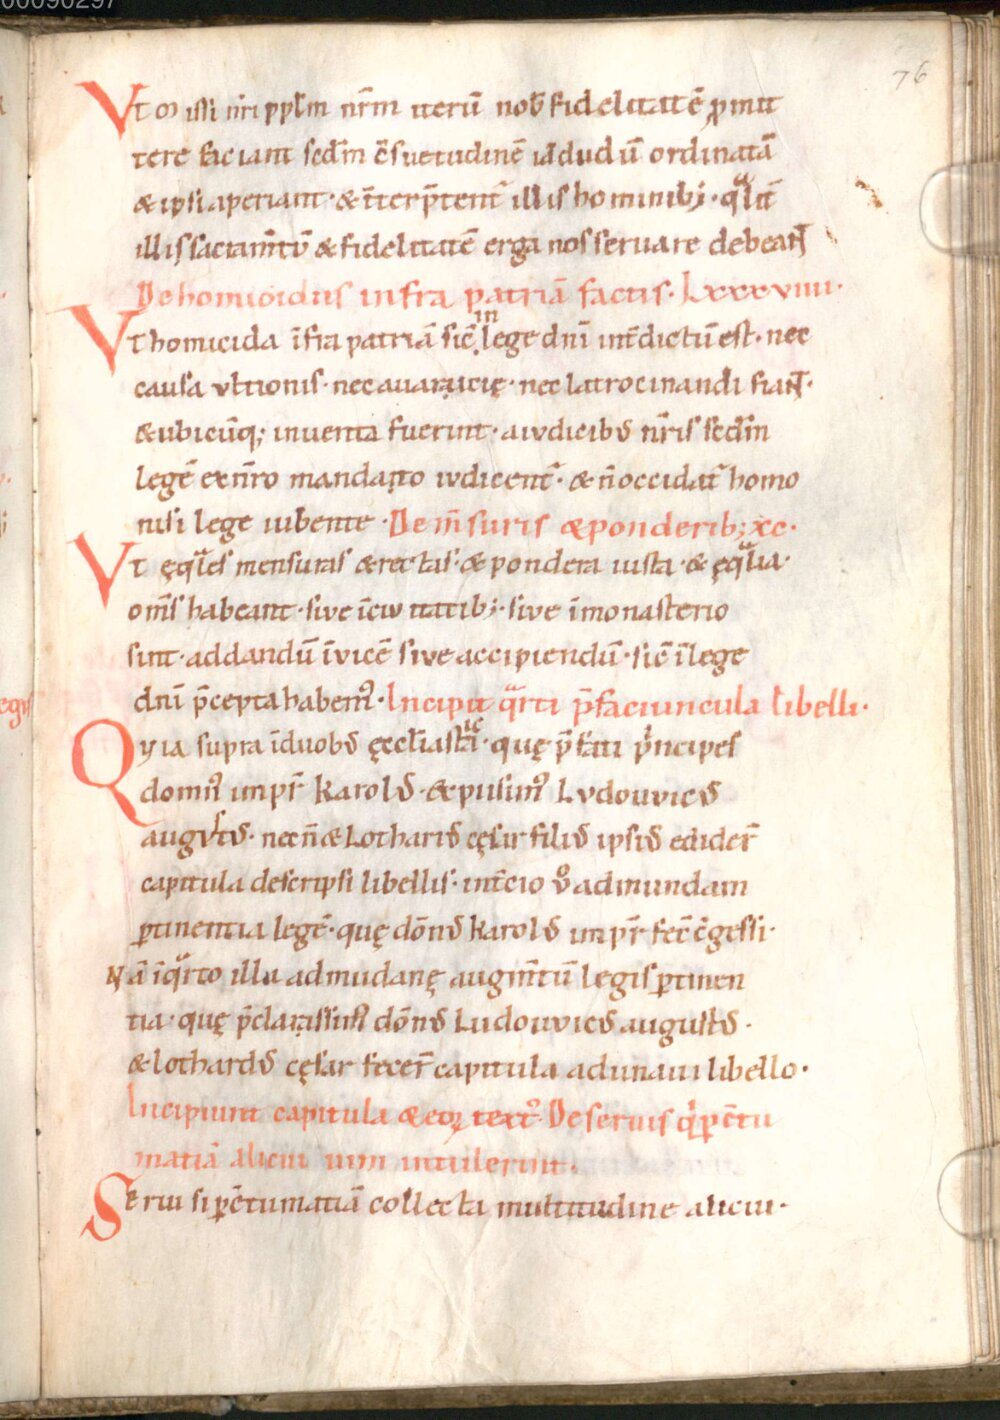 76
Vt missi nr̄i pplm̄ nr̄m iterū nob̄ fidelitatē ꝓmit
tere faciant scd̄m c̄suetudinē iādudū ordinatā
& ipsi aperiant · & īterp̄tent᷑ illis hominib; · qualit̄
illis sacram̄tū & fidelitatē erga nos servare debeant
De homicidiis infra patriā factis · Lxxxviiii ·
Vt homicidia īfra patriā sic̄ in lege dn̄i int̄dictū est · nec
causa ultionis · nec avaricię · nec latrocinandi fiant ·
& ubicūq; inventa fuerint · a iudicib; nr̄is scd̄m
legē ex nr̄o mandato iudicent᷑ · & n̄ occidat᷑ homo
nisi lege iubente · De m̄suris & ponderib; xc ·
Vt ęquales mensuras & rectas · & pondera iusta · & ęqualia ·
om̄s habeant · sive ī civitatib; · sive ī monasterio
sint · ad dandū īvicē sive accipiendū · sic̄ ī lege
dn̄i p̄cepta habem᷒ · Incipit quarti p̄faciuncula libelli ·
Quia supra ī duob; ęccl̄iasticis · quę p̄fati principes
domn᷒ imp̄r Karol᷒ · & piisim᷒ Ludouvic᷒
august᷒ · necn̄ & Lothari᷒ cęsar fili᷒ ipsi᷒ edider̄
capitula descripsi libellis · int̄cio v̊ ad mundam
ꝑtinentia legē · quę dōn᷒ Karol᷒ imp̄r fec̄ c̄gessi ·
Nā ī quarto illa ad mudanę augm̄tū legis ꝑtinen
tia · quę p̄clarissim᷒ dōn᷒ Ludouvic᷒ august᷒ ·
& lothari᷒ cęsar fecer̄ capitula adunavi libello ·
Incipiunt capitula & eoꝝ text᷒ · De servis qui ꝑ c̄tu
matiā alicui vim intulerint ·
Servi si ꝑ c̄tumatiā collecta multitudine alicui ·